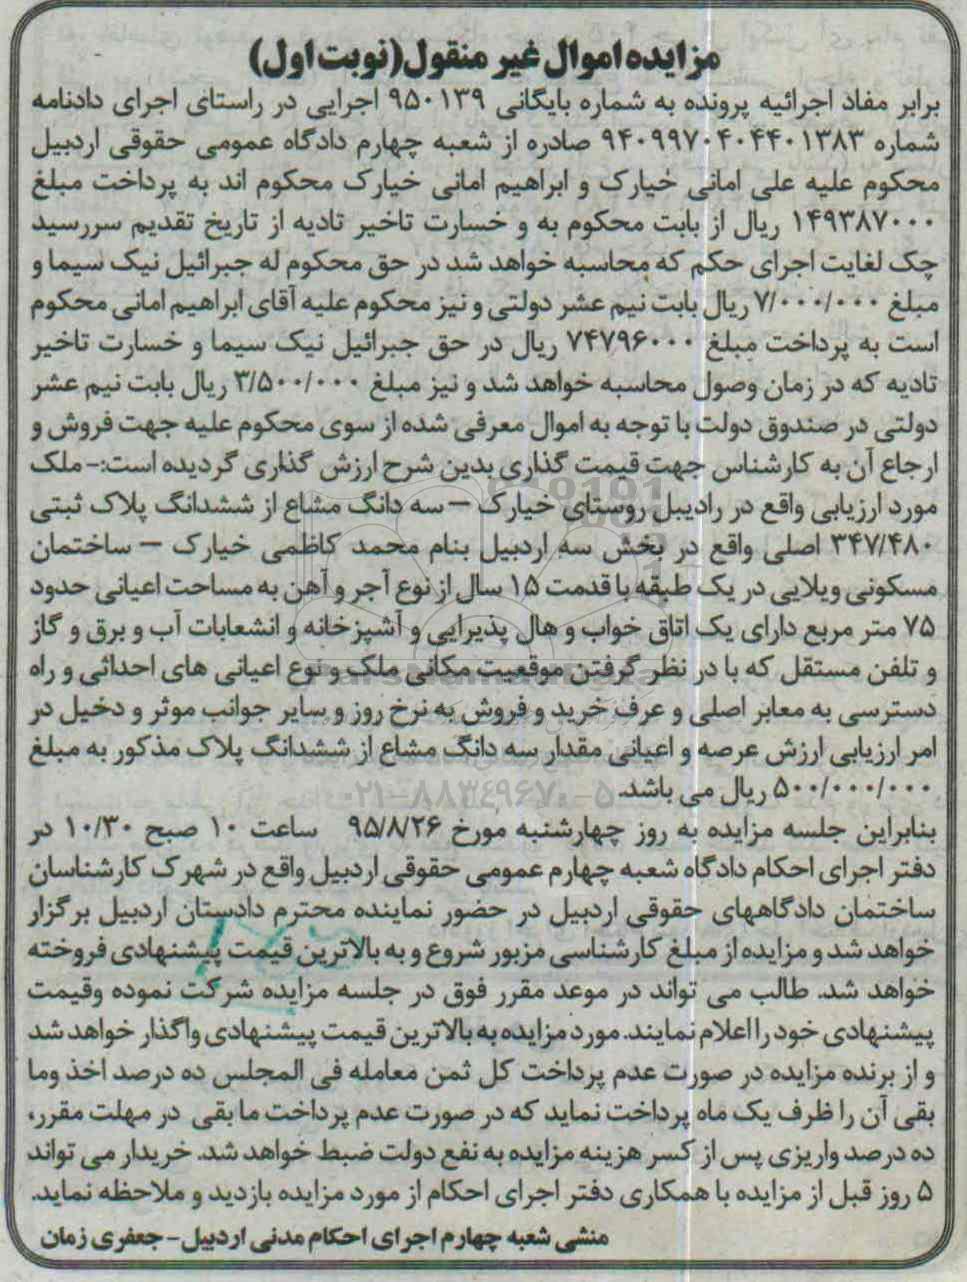 مزایده اموال غیر منقول(نوبت اول)
برابر مفاد اجرائیه پرونده به شماره بایگانی ۹۵۰۱۳۹ اجرایی در راستای اجرای دادنامه
شماره ۹۴۰۹۹۷۰۴۰۴۴۰۱۳۸۳ صادره از شعبه چهارم دادگاه عمومی حقوقی اردبیل
محکوم علیه علی امانی خیارک و ابراهیم امانی خیارک محکوم اند به پرداخت مبلغ
۱۴۹۳۸۷۰۰۰ ریال از بابت محکوم به و خسارت تاخیر تادیه از تاریخ تقدیم سررسید
چک لغایت اجرای حکم که محاسبه خواهد شد در حق محکوم له جبرائیل نیک سیما و
مبلغ ۷/۰۰۰/۰۰۰ ریال بابت نیم عشر دولتی و نیز محکوم علیه آقای ابراهیم امانی محکوم
است به پرداخت مبلغ ۷۴۷۹۶۰۰۰ ریال در حق جبرائیل نیک سیما و خسارت تاخیر
تادیه که در زمان وصول محاسبه خواهد شد و نیز مبلغ ۳/۵۰۰/۰۰۰ ریال بابت نیم عشر
دولتی در صندوق دولت با توجه به اموال معرفی شده از سوی محکوم علیه جهت فروش و
ارجاع آن به کارشناس جهت قیمت گذاری بدین شرح ارزش گذاری گردیده است:- ملک
مورد ارزیابی واقع در رادیبل روستای خیارک – سه دانگ مشاع از ششدانگ پلاک ثبتی
۳۴۷/۴۸۰ اصلی واقع در بخش سه اردبیل بنام محمد کاظمی خیارک – ساختمان
مسکونی ویلایی در یک طبقه با قدمت ۱۵ سال از نوع آجر و آهن به مساحت اعیانی حدود
۷۵ متر مربع دارای یک اتاق خواب و هال پذیرایی و آشپزخانه و انشعابات آب و برق و گاز
و تلفن مستقل که با در نظر گرفتن موقعیت مکانی ملک و نوع اعیانی های احداثی و راه
دسترسی به معابر اصلی و عرف خرید و فروش به نرخ روز و سایر جوانب موثر و دخیل در
امر ارزیابی ارزش عرصه و اعیانی مقدار سه دانگ مشاع از ششدانگ پلاک مذکور به مبلغ
۵۰۰/۰۰۰/۰۰۰ ریال می باشد.
۰۲۱-۸۸۳۴۹۶۷۰-۵
بنابراین جلسه مزایده به روز چهارشنبه مورخ ۹۵/۸/۲۶ ساعت ۱۰ صبح ۱۰/۳۰ در
دفتر اجرای احکام دادگاه شعبه چهارم عمومی حقوقی اردبیل واقع در شهرک کارشناسان
ساختمان دادگاههای حقوقی اردبیل در حضور نماینده محترم دادستان اردبیل برگزار
خواهد شد و مزایده از مبلغ کارشناسی مزبور شروع و به بالاترین قیمت پیشنهادی فروخته
خواهد شد. طالب می تواند در موعد مقرر فوق در جلسه مزایده شرکت نموده وقیمت
پیشنهادی خود را اعلام نمایند. مورد مزایده به بالاترین قیمت پیشنهادی واگذار خواهد شد
و از برنده مزایده در صورت عدم پرداخت کل ثمن معامله فی المجلس ده درصد اخذ وما
بقی آن را ظرف یک ماه پرداخت نماید که در صورت عدم پرداخت ما بقی در مهلت مقرر،
ده درصد واریزی پس از کسر هزینه مزایده به نفع دولت ضبط خواهد شد. خریدار می تواند
۵ روز قبل از مزایده با همکاری دفتر اجرای احکام از مورد مزایده بازدید و ملاحظه نماید.
منشی شعبه چهارم اجرای احکام مدنی اردبیل - جعفری زمان